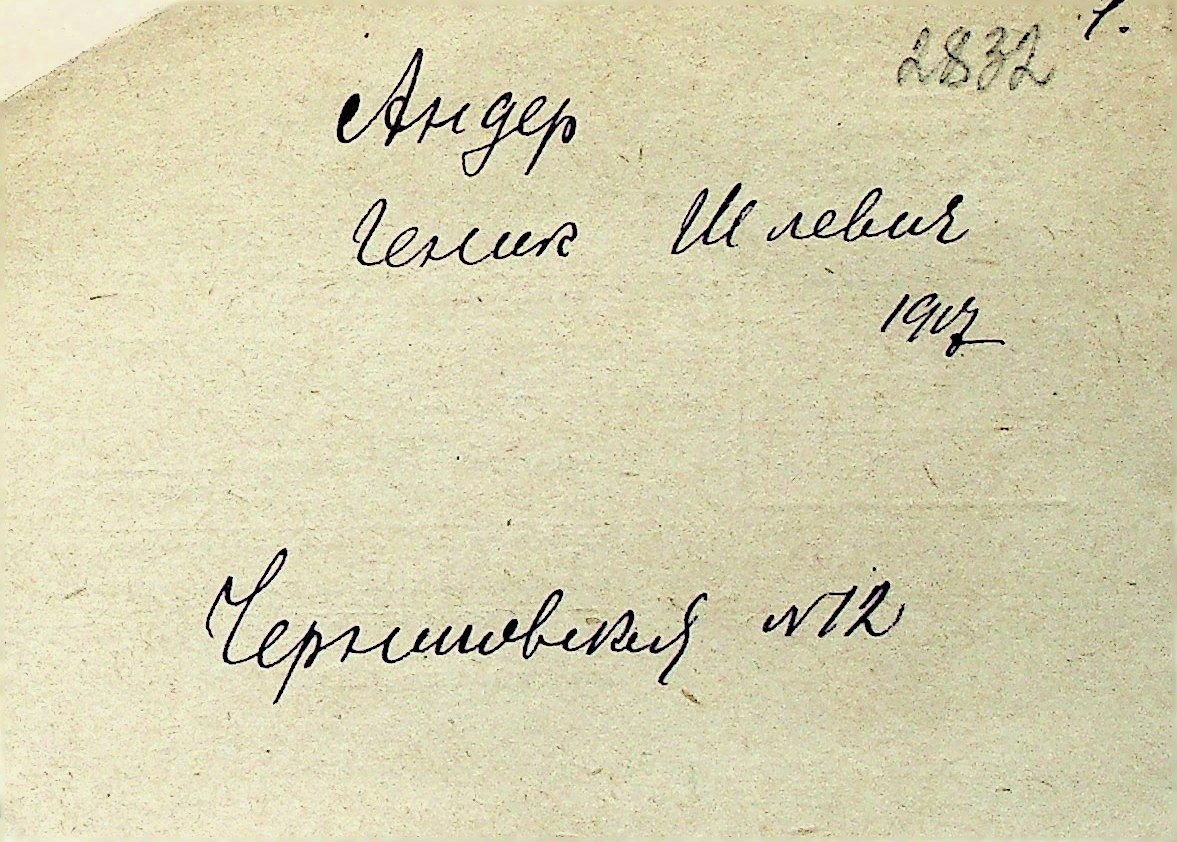 2832
Андер
Геник Шлевич
1917
Черниговская № 12